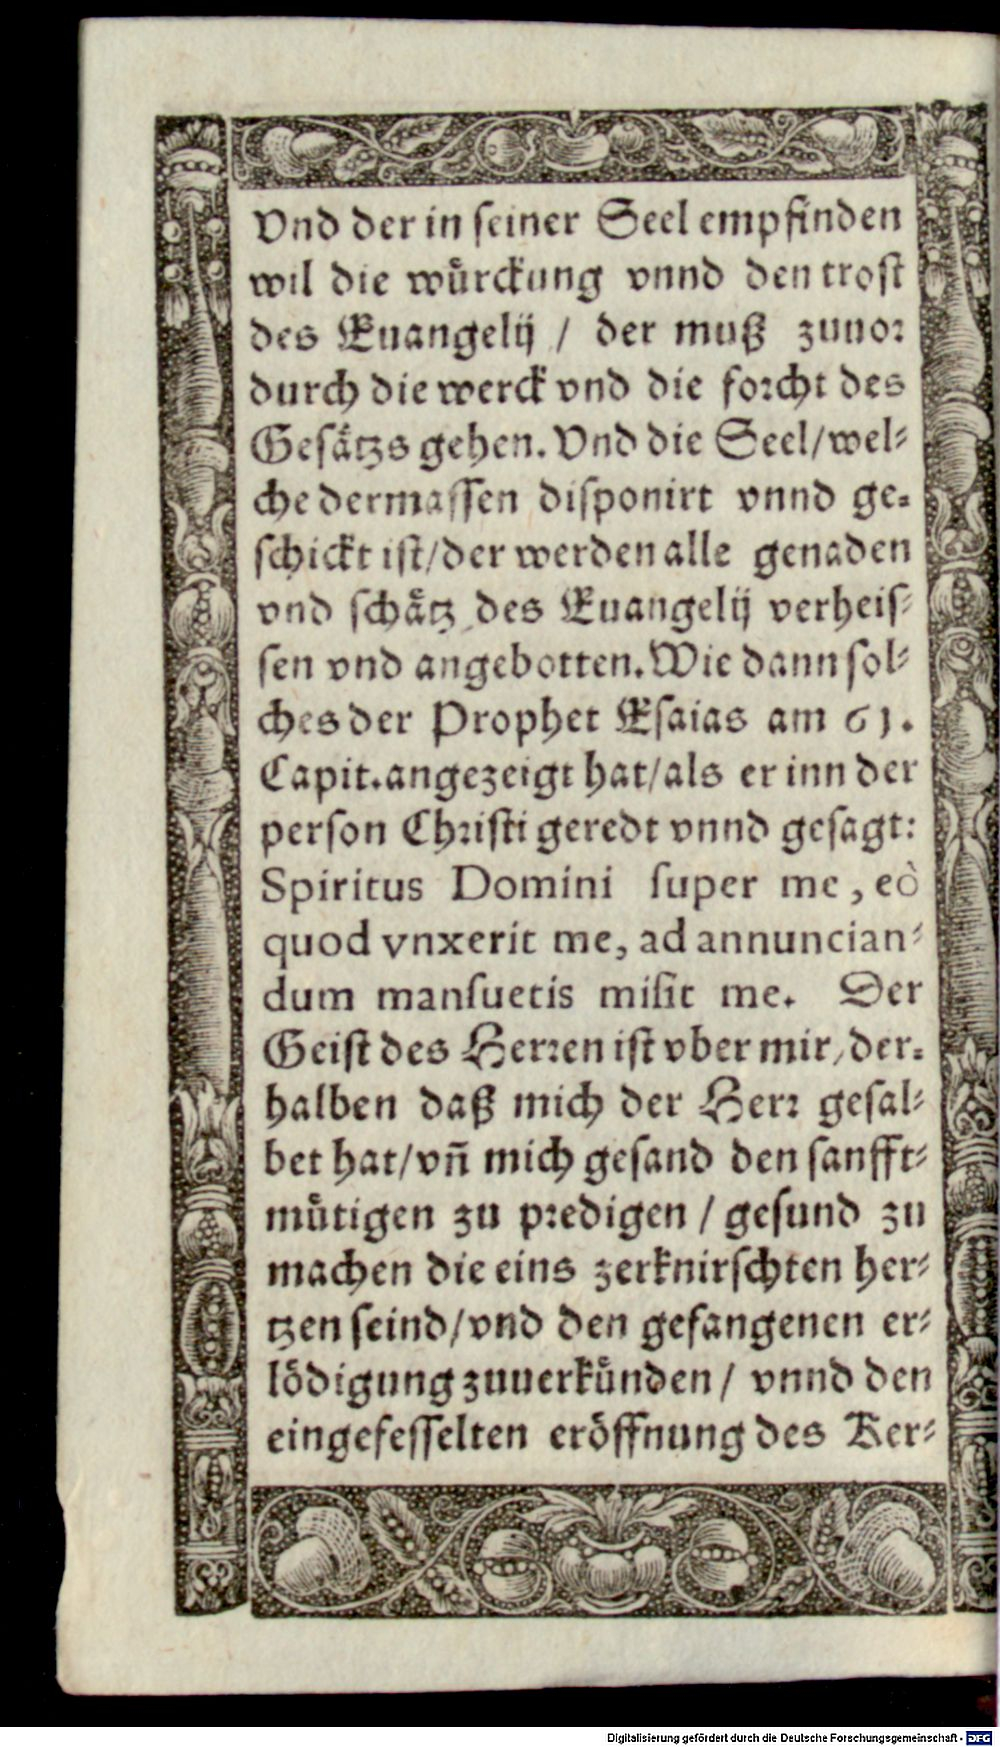 Vnd der in seiner Seel empfinden
wil die wuͤrckung vnnd den trost
des Euangelij / der muß zuuor
durch die werck vnd die forcht des
Gesaͤtzs gehen. Vnd die Seel/wel-
che dermassen disponirt vnnd ge-
schickt ist/der werden alle genaden
vnd schaͤtz des Euangelij verheis-
sen vnd angebotten. Wie dann sol-
ches der Prophet Esaias am 61.
Capit. angezeigt hat/als er inn der
person Christi geredt vnnd gesagt:
Spiritus Domini super me, eò
quod vnxerit me, ad annuncian-
dum mansuetis misit me. Der
Geist des Herren ist vber mir/der-
halben daß mich der Herr gesal-
bet hat/vñ mich gesand den sanfft-
muͤtigen zu predigen / gesund zu
machen die eins zerknirschten her-
tzen seind/vnd den gefangenen er-
loͤdigung zuuerkuͤnden / vnnd den
eingefesselten eroͤffnung des Ker-
Digitalisierung gefördert durch die Deutsche Forschungsgemeinschaft - DFG